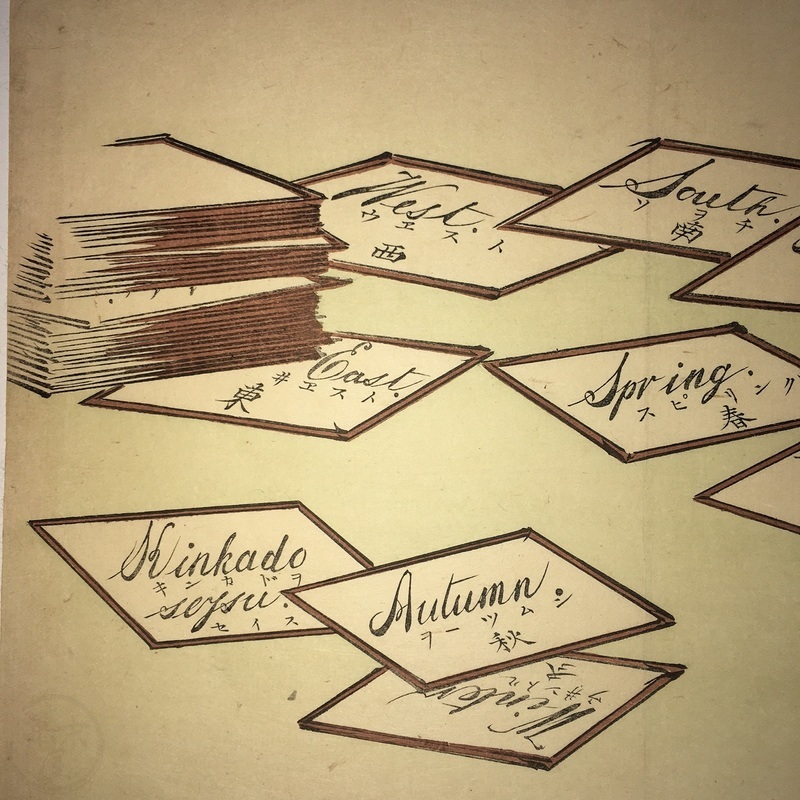 West.
ウエスト
西
South.
ソヲチ
南
East.
ヰエスト
東
Spring.
スピリン
春
Kinkado
キンカドヲ
seysu.
セイス
Autumn.
ヲーツムン
秋
Winter